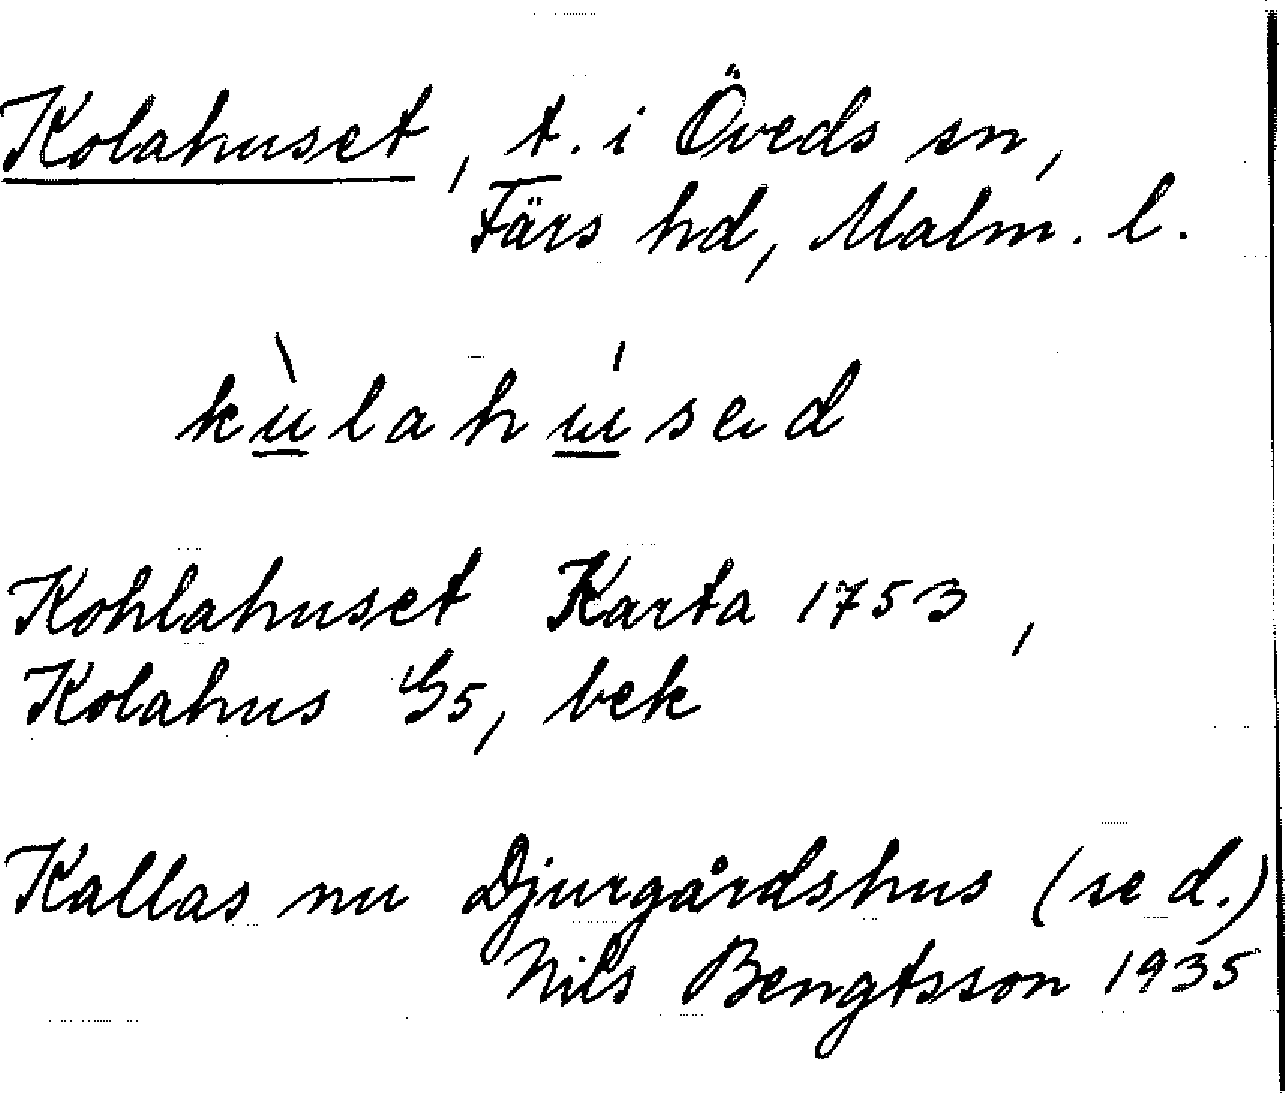 Kolahuset, t. i Öveds sn,
Färs hd, Malm. l.
kùlahúsed
Kohlahuset Karta 1753,
Kolahus G5, bek
Kallas nu Djurgårdshus (se d.)
Nils Bengtsson 1935